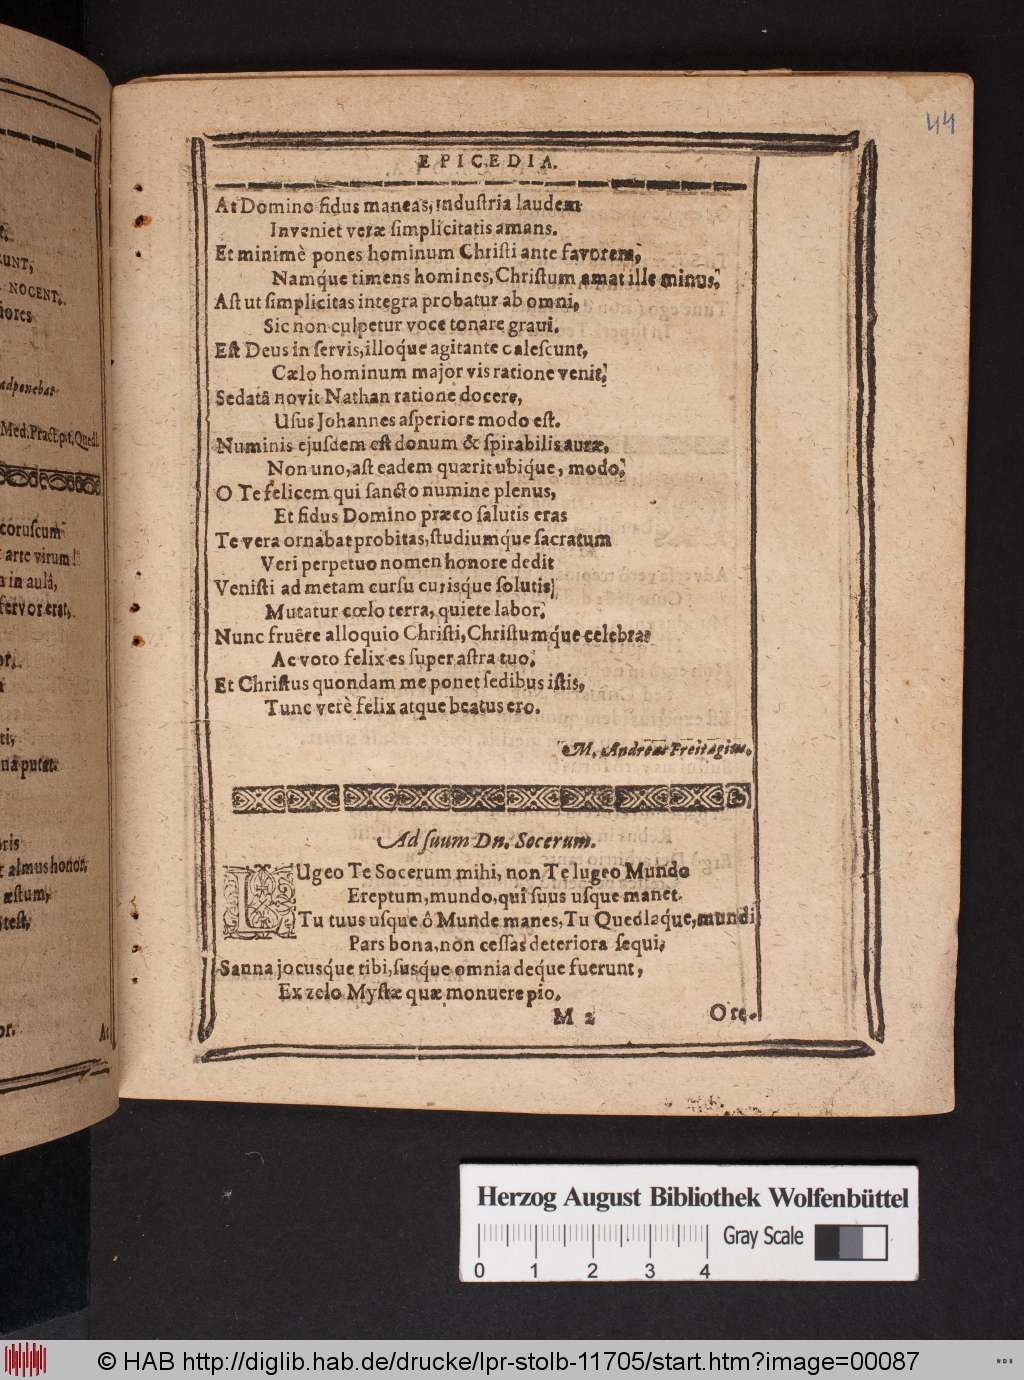 44
EPICEDIA.
At Domino fidus maneas, industria laudem
Inveniet veræ ſimplicitatis amans.
Et minimè pones hominum Chriſti ante favorem,
Namq́ue timens homines, Chriſtum amat ille minus.
Aſt ut ſimplicitas integra probatur ab omni,
Sic non culpetur voce tonare graui.
Eſt Deus in ſervis, illoq́ue agitante caleſcunt,
Cælo hominum major vis ratione venit.
Sedatâ novit Nathan ratione docere,
Uſus Johannes aſperiore modo eſt.
Numinis ejuſdem eſt donum & ſpirabilis auræ,
Non uno, aſt eadem quærit ubiq́ue, modo.
O Te felicem qui ſancto numine plenus,
Et fidus Domino præco ſalutis eras
Te vera ornabat probitas, ſtudiumq́ue ſacratum
Veri perpetuo nomen honore dedit
Veniſti ad metam curſu curisque ſolutis,
Mutatur cœlo terra, quiete labor.
Nunc fruêre alloquio Chriſti, Chriſtumq́ue celebra:
Ac voto felix es ſuper aſtra tuo.
Et Chriſtus quondam me ponet ſedibus iſtis,
Tunc verè felix atque beatus ero.
M. Andreas Freitagius.
Ad ſuum Dn. Socerum.
LUgeo Te Socerum mihi, non Te lugeo Mundo
Ereptum, mundo, qui ſuus uſque manet.
Tu tuus uſque ô Munde manes, Tu Quedlaque, mundi
Pars bona, non ceſſas deteriora ſequi.
Sanna jocusq́ue tibi, ſusq́ue omnia deque fuerunt,
Ex zelo Myſtæ quæ monuere pio.
M 2
Ore.
SUNT,
NOCENT.
adponebat
Med. Pract. p.t. Quedl.
coruſcum
arte virum!
in aulâ,
fervor erat,
putat.
almus honor,
æſtum,
At
Herzog August Bibliothek Wolfenbüttel
Gray Scale
0 1 2 3 4
© HAB http://diglib.hab.de/drucke/lpr-stolb-11705/start.htm?image=00087